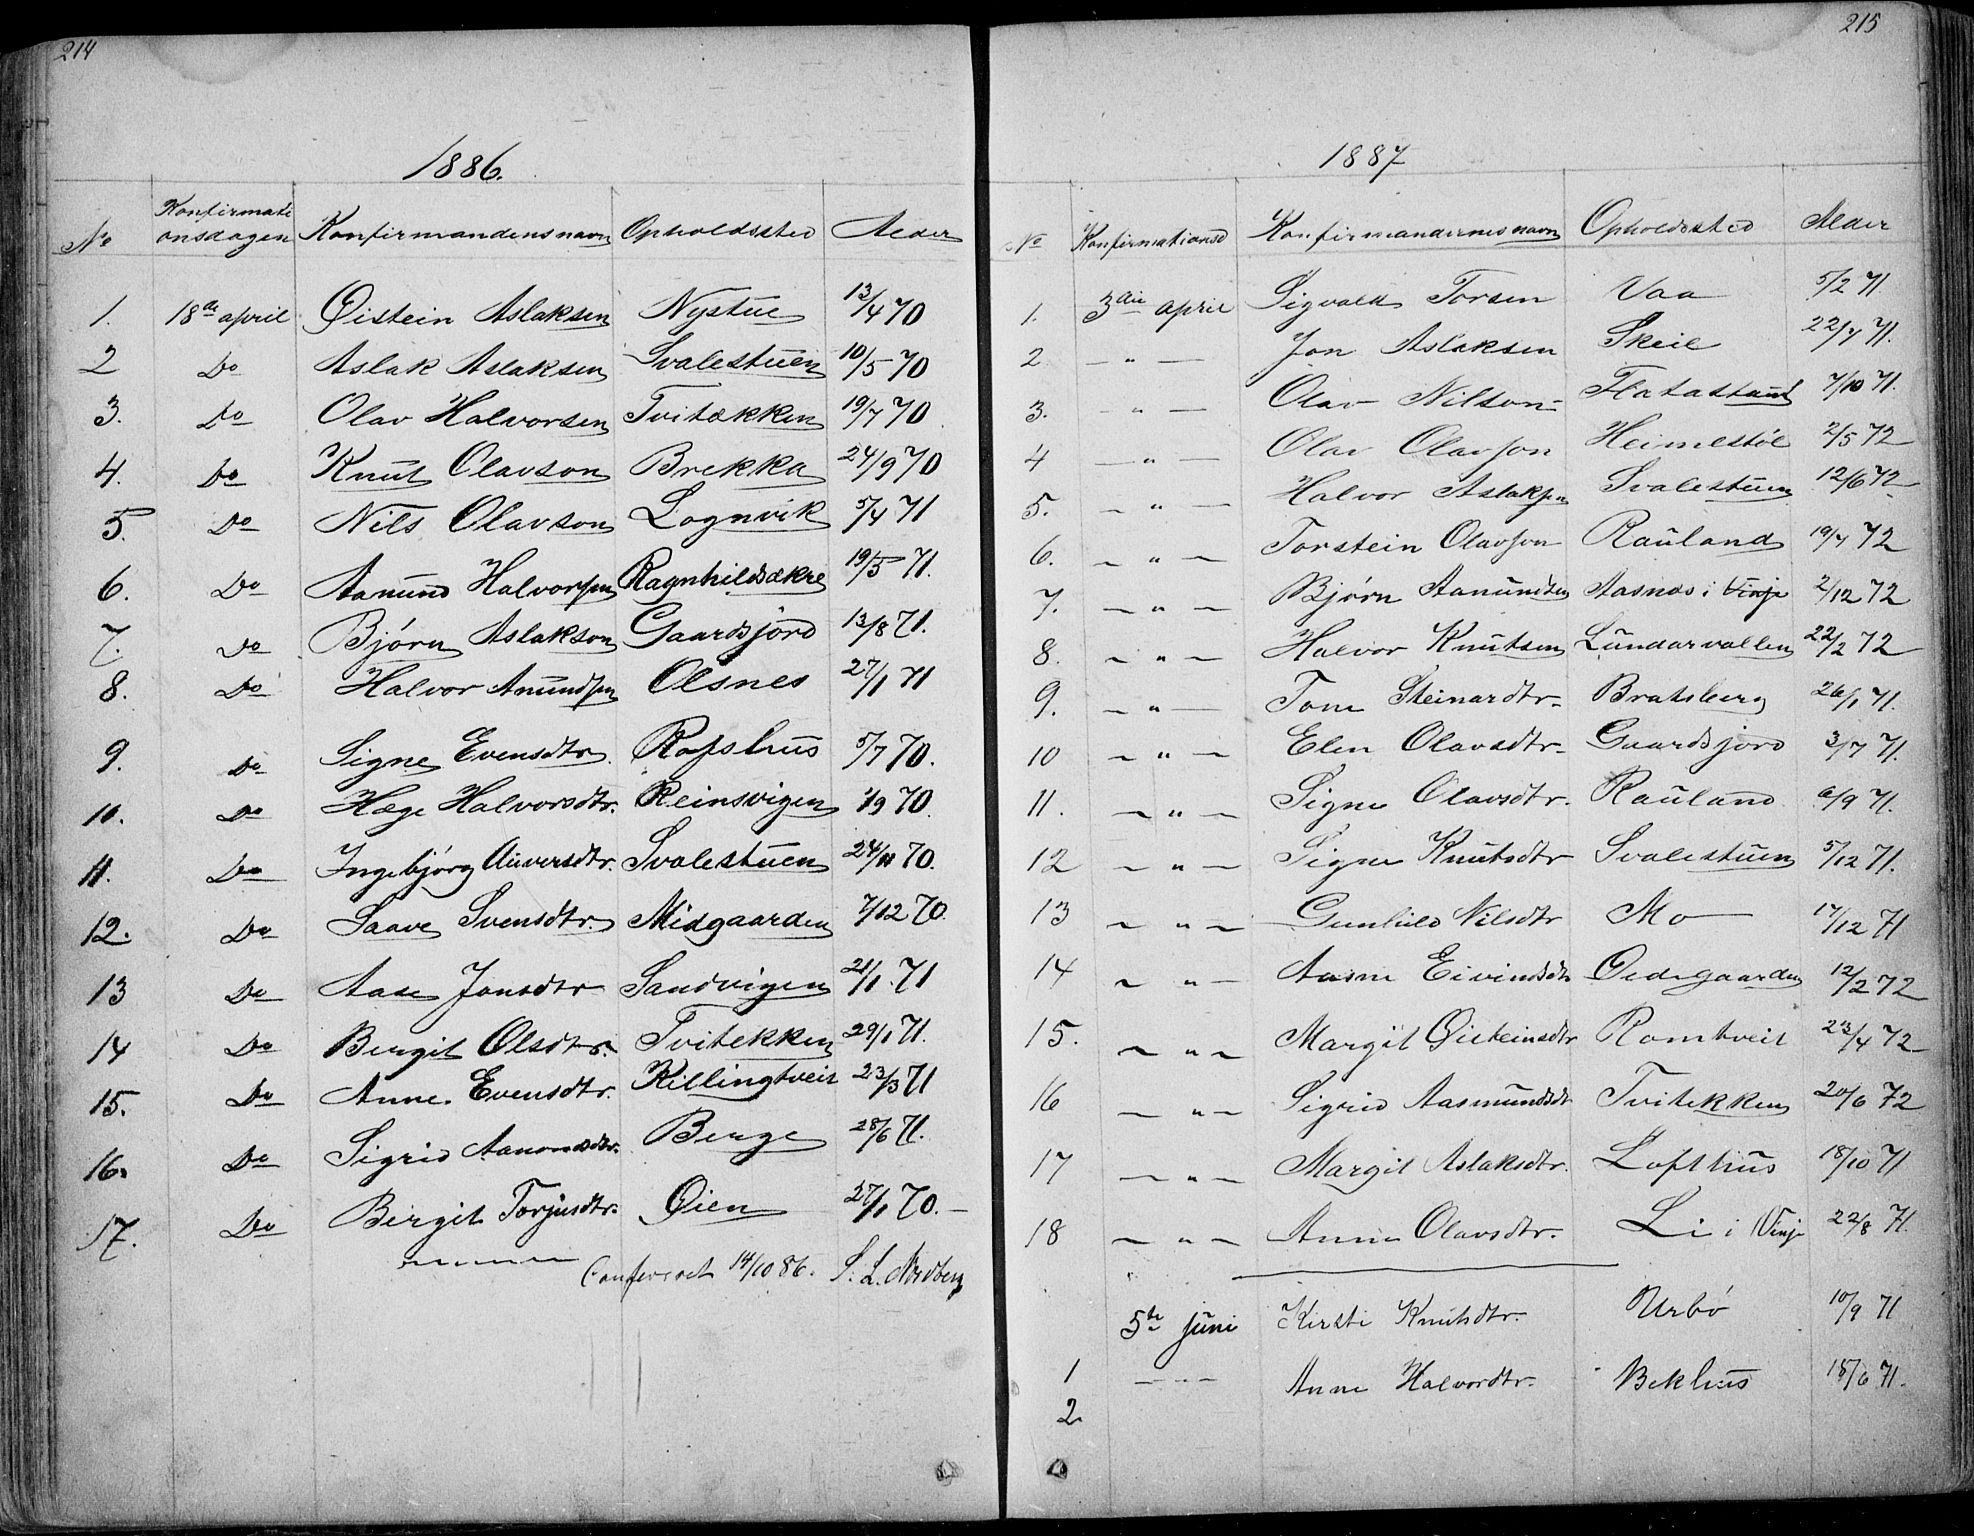 214
1886.
No Konfirmationsdagen Konfirmandens navn Opholdssted Alder
1. 18de april Øistein Aslaksen Nystue 13/4 70
2 Do Aslak Aslaksen Svalestuen 10/5 70
3. Do Olav Halvorsen Tvitækken 19/7 70
4. Do Knut Olavson Brekka 24/9 70
5. Do Nils Olavson Lognvik 5/4 71
6. Do Aanund Halvorsen Ragnhildsækre 19/5 71.
7. Do Bjørn Aslakson Gaardsjord 13/8 71.
8. Do Halvor Anundsen Olsnes 27/1 71
9. Do Signe Evensdtr. Rofshus 5/7 70.
10. Do Hæge Halvorsdtr. Reinsvigen 1/9 70.
11. Do Ingebjørg Auversdtr. Svalestuen 24/11 70.
12. Do Saave Svensdtr. Midgaarden 7/12 70.
13 Do Aase Jonsdtr Sandvigen 21/1 71
14 Do Bergit Olsdtr. Tvitekken 29/1 71.
15. Do Anne Evensdtr. Killingtveit 23/3 71
16. Do Sigrid Aanondsdtr. Berge 28/6 71.
17. Do Birgit Torjusdtr. Øien 27/1 70.
Conferert 14/10 86. S. L. Nordberg
215
1887
No Konfirmationsd Konfirmandernes navn Opholdssted Alder
1. 3die april Sigvald Torsen Vaa 5/2 71
2 — " — Jon Aslaksen Skeie 22/7 71.
3. — " — Olav Nilson Flatastaul 7/10 71.
4 — " — Olav Olavson Heimestøl 2/5 72
5. — " — Halvor Aslaksen Svalestuen 12/6 72
6. — " — Torstein Olavson Rauland 19/7 72
7. — " — Bjørn Aanundsen Aasnes i Vinje 2/12 72
8. — " — Halvor Knutsen Lundarvallen 22/2 72
9. — " — Tone Steinardtr. Bratsberg 26/1 71.
10 — " — Elen Olavsdtr. Gaardsjord 3/7 71.
11. — " — Signe Olavsdtr. Rauland 6/9 71.
12 — " — Signe Knutsdtr Svalestuen 5/12 71.
13 — " — Gunhild Nilsdtr Mo 17/12 71
14 — " — Aasne Eivindsdtr Ødegaarden 12/2 72
15. — " — Margit Øisteinsdtr Romtveit 23/4 72
16 — " — Sigrid Aasmundsdtr Tvitekken 20/6 72
17 — " — Margit Aslaksdtr. Lofthus 18/10 71
18 — " — Anne Olavsdtr. Li i Vinje 22/8 71.
1 5te juni Kirsti Knutsdtr. Urbø 10/9 71
2 — " — Anne Halvordtr. Bekhus 18/6 71.